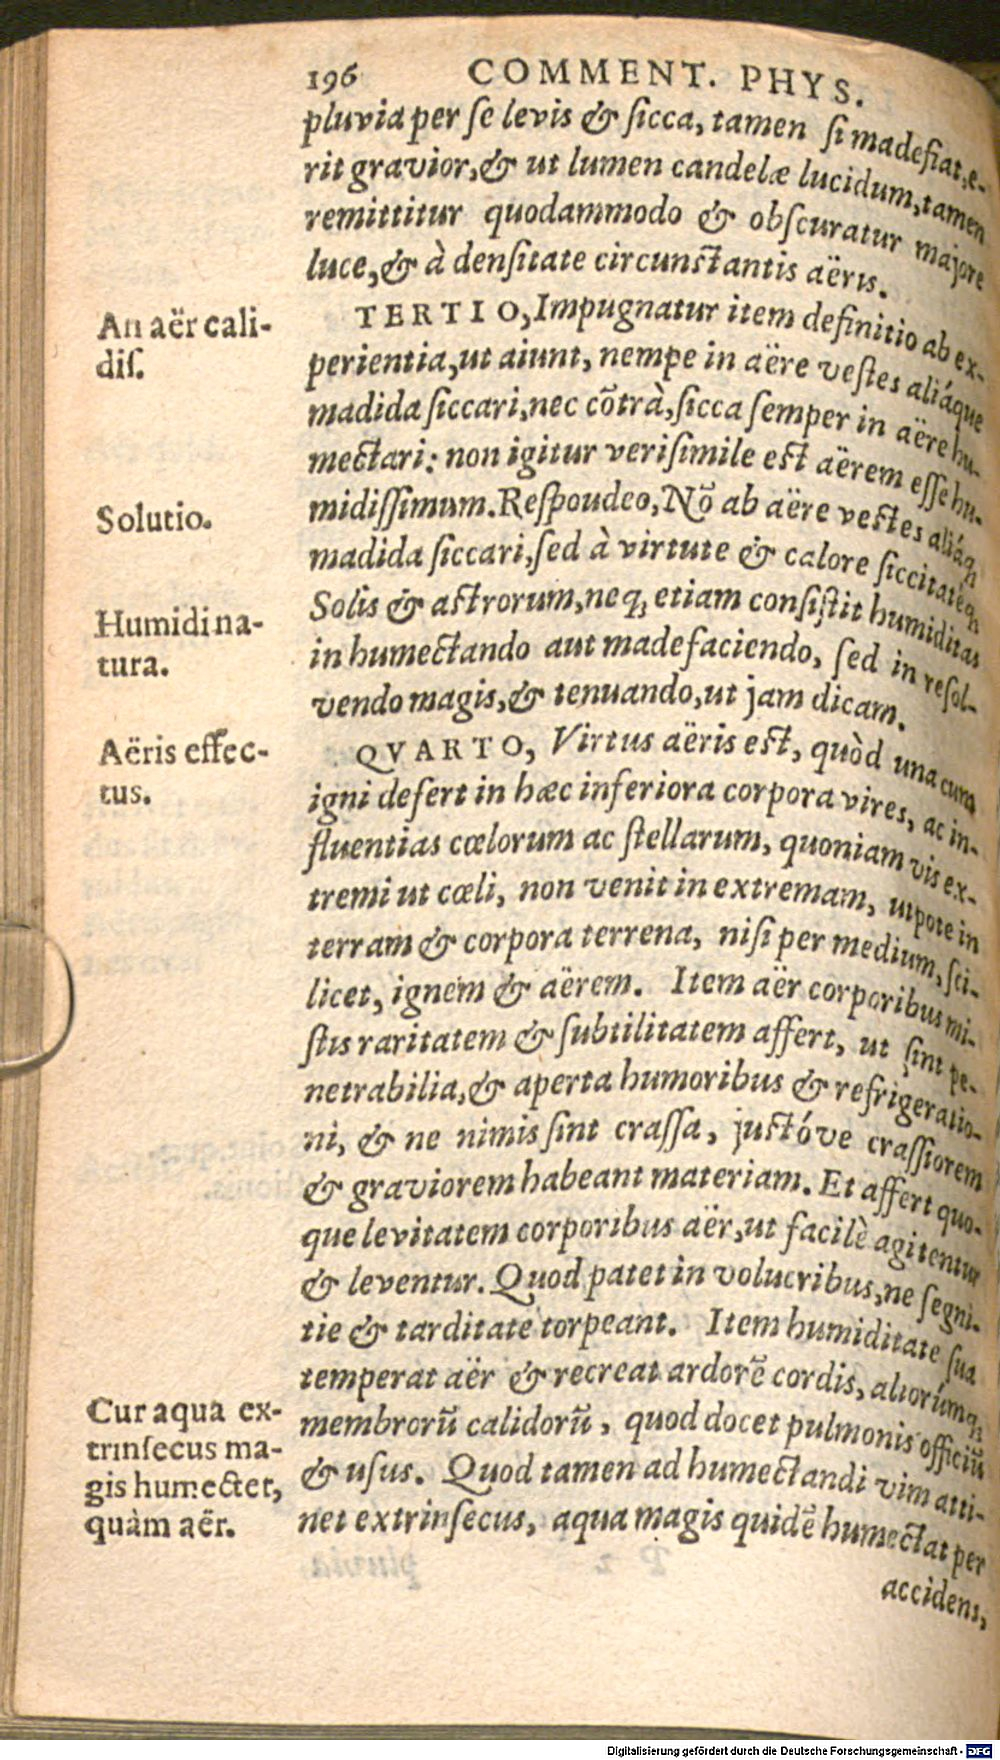 196 COMMENT. PHYS.
pluvia per ſe levis & ſicca, tamen ſi madefiat, e-
rit gravior, & ut lumen candelæ lucidum, tamen
remittitur quodammodo & obſcuratur majore
luce, & à denſitate circunſtantis aëris.
An aër cali-
diſ.
TERTIO, Impugnatur item definitio ab ex-
perientia, ut aiunt, nempe in aëre veſtes aliáque
madida ſiccari, nec cõtrà, ſicca ſemper in aëre hu-
mectari: non igitur veriſimile eſt aërem eſſe hu-
Solutio.
midiſſimum. Reſpoudeo, Nõ ab aëre veſtes aliáq;
madida ſiccari, ſed à virtute & calore ſiccitateq;
Humidi na-
tura.
Solis & aſtrorum, neq; etiam conſiſtit humiditas
in humectando aut madefaciendo, ſed in reſol-
vendo magis, & tenuando, ut jam dicam.
Aëris effec-
tus.
QVARTO, Virtus aëris eſt, quòd una cum
igni defert in hæc inferiora corpora vires, ac in-
fluentias cœlorum ac ſtellarum, quoniam vis ex-
tremi ut cœli, non venit in extremam, utpote in
terram & corpora terrena, niſi per medium, ſci-
licet, ignem & aërem. Item aër corporibus mi-
ſtis raritatem & ſubtilitatem affert, ut ſint pe-
netrabilia, & aperta humoribus & refrigeratio-
ni, & ne nimis ſint craſſa, juſtóve craſſiorem
& graviorem habeant materiam. Et affert quo-
que levitatem corporibus aër, ut facilè agitentur
& leventur. Quod patet in volucribus, ne ſegni-
tie & tarditate torpeant. Item humiditate ſua
temperat aër & recreat ardorẽ cordis, aliorúmq;
Cur aqua ex-
trinſecus ma-
gis humectet,
quàm aër.
membrorũ calidorũ, quod docet pulmonis officiũ
& uſus. Quod tamen ad humectandi vim atti-
net extrinſecus, aqua magis quidẽ humectat per
accidens,
Digitalisierung gefördert durch die Deutsche Forschungsgemeinschaft - DFG